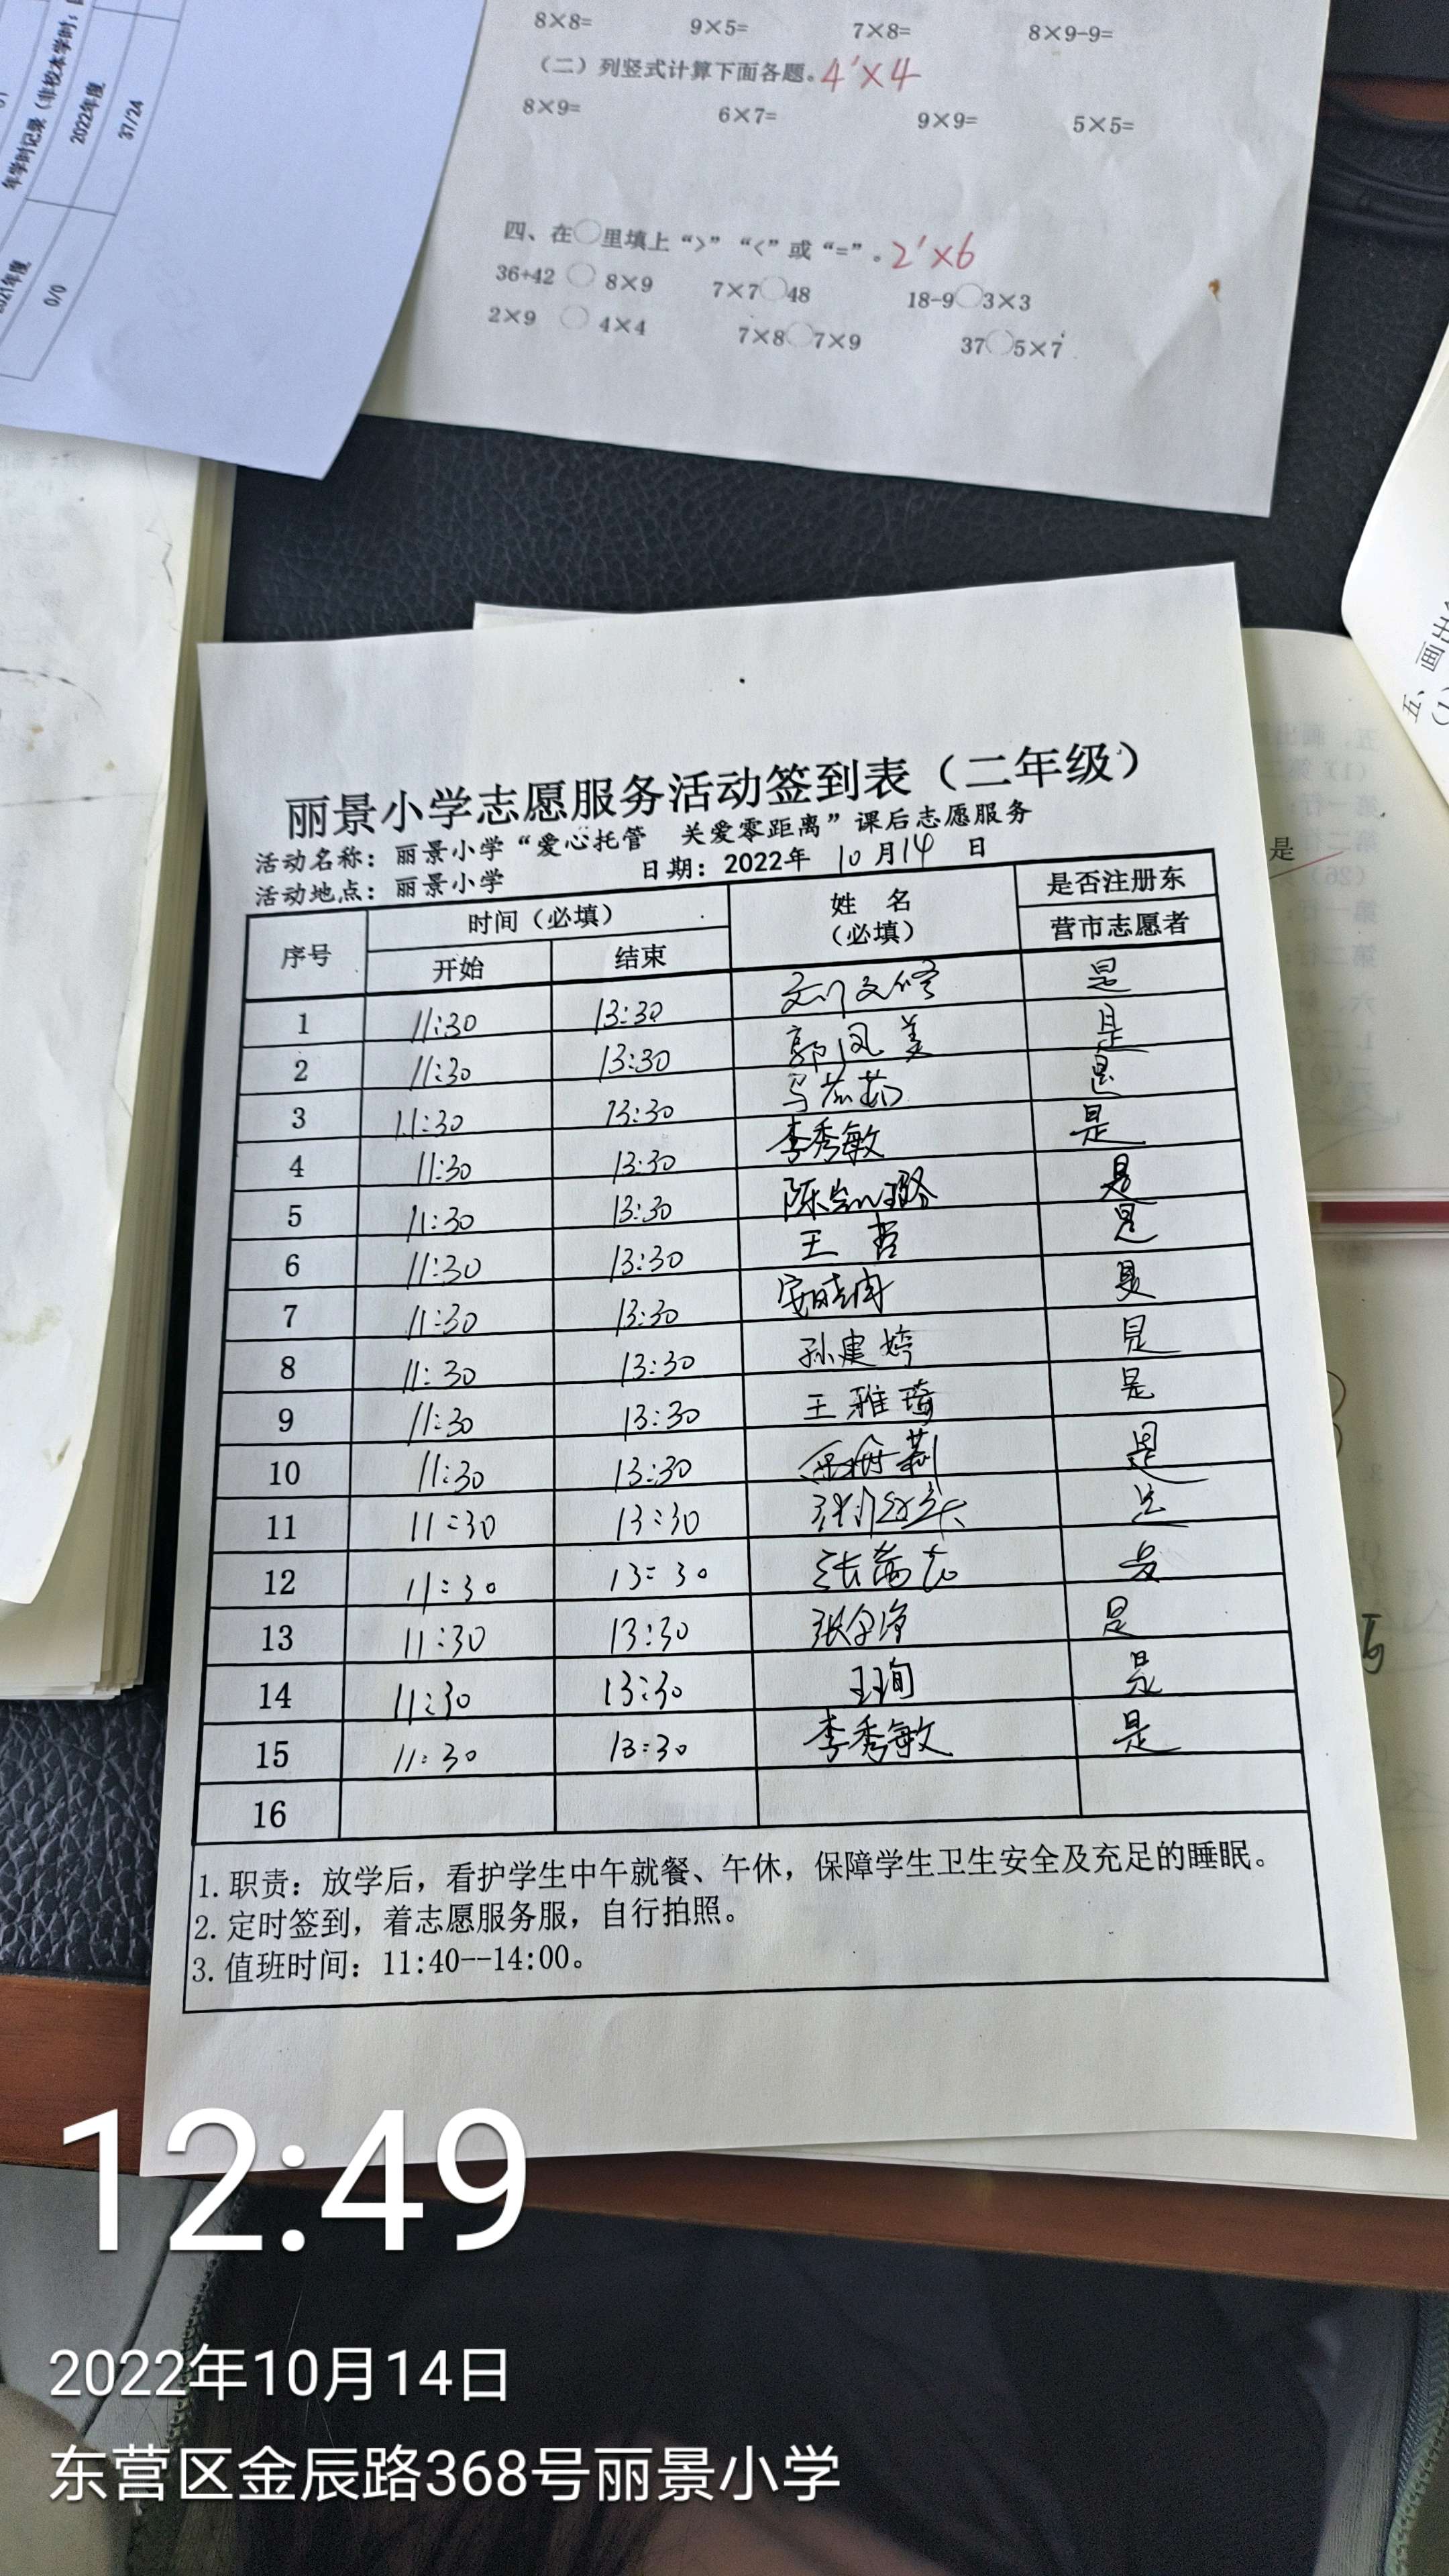 年学时记录（非校本学时：
2022年度
37/24
21年度
0/0
8×8= 9×5= 7×8= 8×9-9=
（二）列竖式计算下面各题。4'×4
8×9= 6×7= 9×9= 5×5=
四、在○里填上“>”“<”或“=”。2'×6
36+42○8×9 7×7○48 18-9○3×3
2×9○4×4 7×8○7×9 37○5×7
丽景小学志愿服务活动签到表（二年级）
活动名称：丽景小学“爱心托管 关爱零距离”课后志愿服务
活动地点：丽景小学 日期：2022年 10月14日
序号 时间（必填） 姓 名（必填） 是否注册东营市志愿者
开始 结束
1 11:30 13:30 是
2 11:30 13:30 郭凤美 是
3 11:30 13:30 是
4 11:30 13:30 李秀敏 是
5 11:30 13:30 是
6 11:30 13:30 王哲 是
7 11:30 13:30 是
8 11:30 13:30 孙建婷 是
9 11:30 13:30 王雅琦 是
10 11:30 13:30 是
11 11:30 13:30 是
12 11:30 13:30 是
13 11:30 13:30 是
14 11:30 13:30 王珣 是
15 11:30 13:30 李秀敏 是
16
1.职责：放学后，看护学生中午就餐、午休，保障学生卫生安全及充足的睡眠。
2.定时签到，着志愿服务服，自行拍照。
3.值班时间：11:40--14:00。
是
五、画出
12:49
2022年10月14日
东营区金辰路368号丽景小学